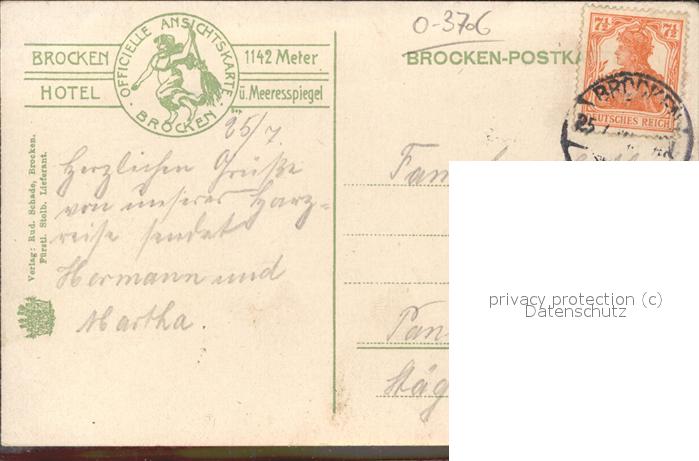 O-3706
BROCKEN 1142 Meter
HOTEL ü. Meeresspiegel
OFFICIELLE ANSICHTSKARTE
BROCKEN
BROCKEN-POSTKA
7½ 7½
DEUTSCHES REICH
BROCKEN
25.7.
25/7
Herzlichen Grüße
von unserer Harz=
reise sendet
Hermann und
Martha.
Verlag: Rud. Schade, Brocken.
Fürstl. Stolb. Lieferant.
Fam
Pan
Stäg
privacy protection (c)
Datenschutz